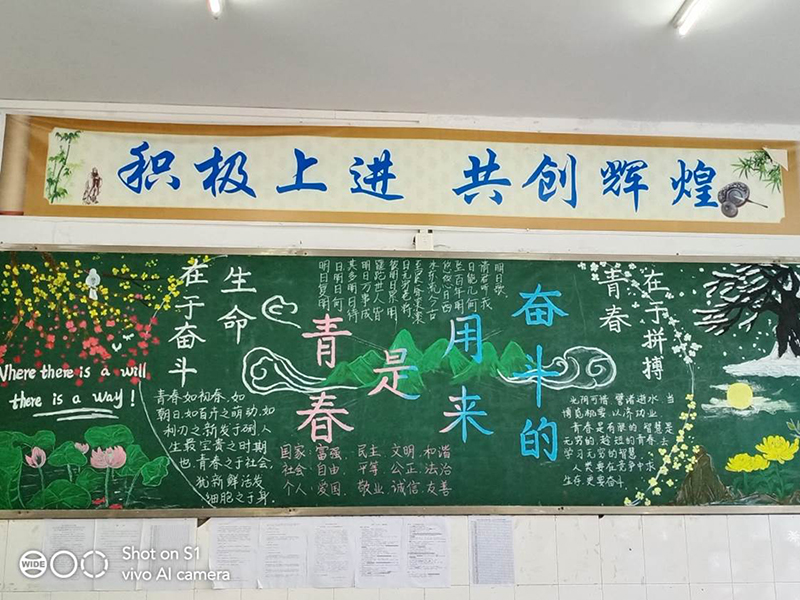 积极上进 共创辉煌
生命
在于奋斗
Where there is a will
there is a way!
青春如初春,如
朝日,如百卉之萌动,如
利刃之新发于硎,人
生最宝贵之时期
也。青春之于社会,
犹新鲜活发
细胞之于身。
明日复明
日明日何
其多明日待
明日万事成
青春是用来奋斗的
国家:富强 民主 文明 和谐
社会:自由 平等 公正 法治
个人:爱国 敬业 诚信 友善
青春
在于拼搏
光阴可惜 譬诸逝水 当
博览机要 以济功业
青春是有限的 智慧是
无穷的 趁短的青春 去
学习无穷的智慧
人类要在竞争中求
生存 更要奋斗
WIDE
Shot on S1
vivo AI camera